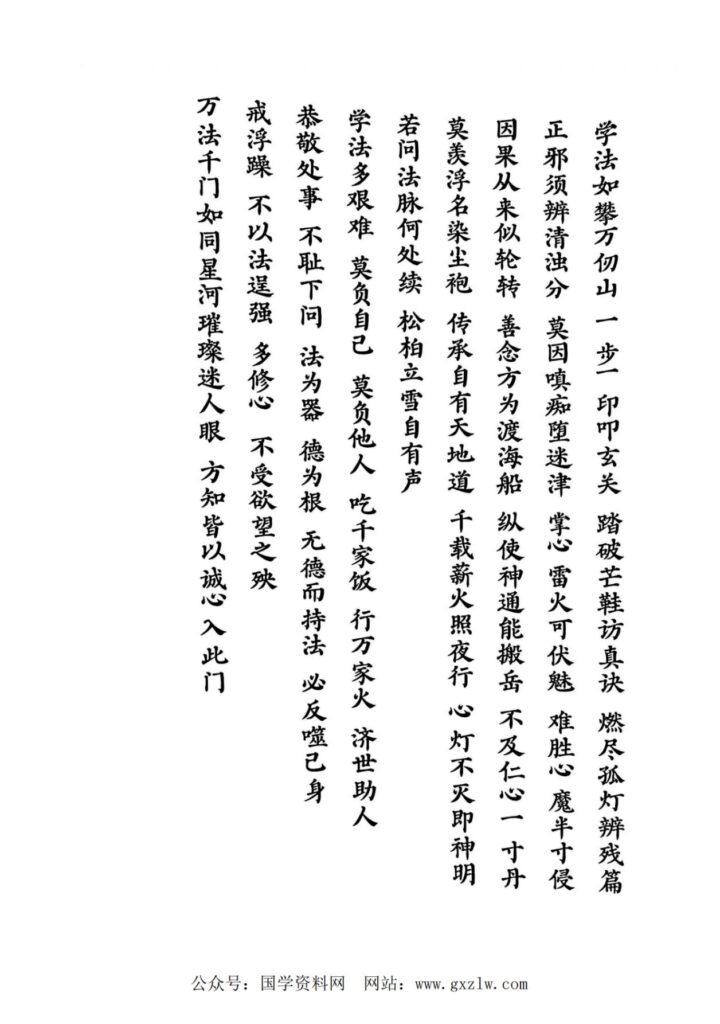 学法如攀万仞山 一步一印叩玄关 踏破芒鞋访真诀 燃尽孤灯辨残篇
正邪须辨清浊分 莫因嗔痴堕迷津 掌心雷火可伏魅 难胜心魔半寸侵
因果从来似轮转 善念方为渡海船 纵使神通能搬岳 不及仁心一寸丹
莫羡浮名染尘袍 传承自有天地道 千载薪火照夜行 心灯不灭即神明
若问法脉何处续 松柏立雪自有声
学法多艰难 莫负自己 莫负他人 吃千家饭 行万家火 济世助人
恭敬处事 不耻下问 法为器 德为根 无德而持法 必反噬己身
戒浮躁 不以法逞强 多修心 不受欲望之殃
万法千门如同星河璀璨迷人眼 方知皆以诚心入此门
公众号：国学资料网 网站：www.gxzlw.com